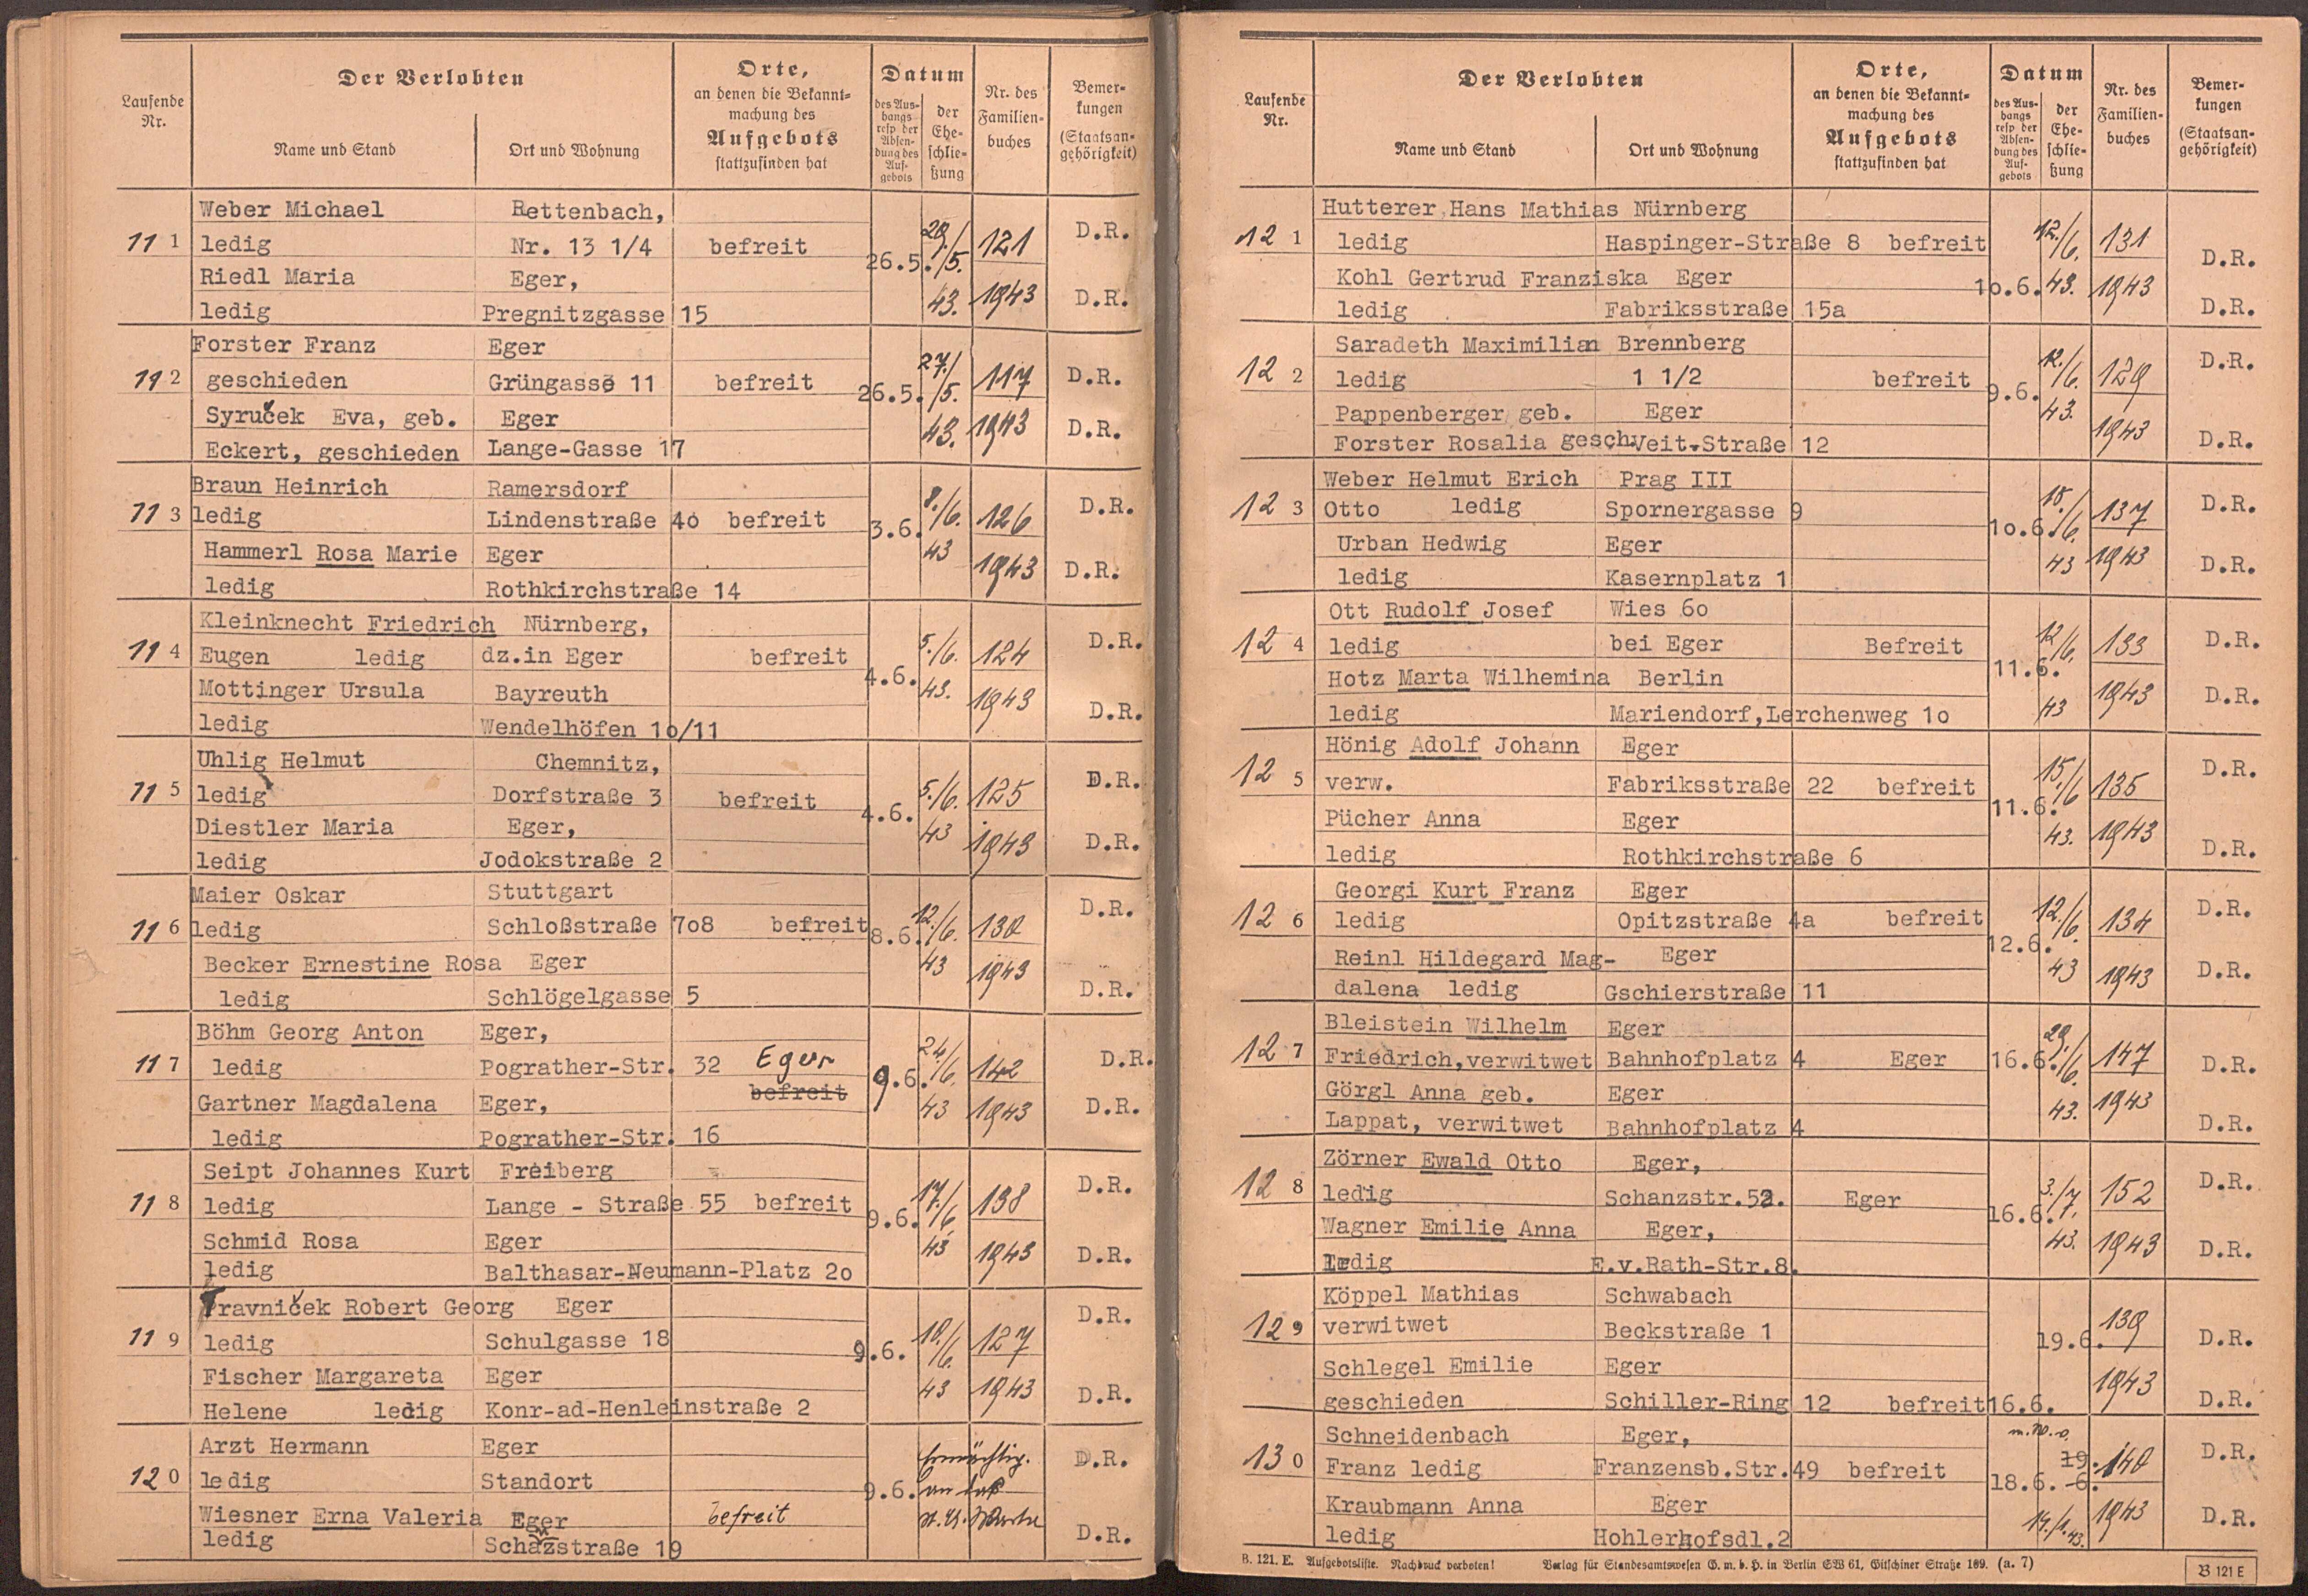 Laufende Nr.
Der Verlobten
Name und Stand
Ort und Wohnung
Orte,
an denen die Bekannt-
machung des
Aufgebots
stattzufinden hat
Datum
des Aus-
hangs
resp der
Absen-
dung des
Auf-
gebots
der
Ehe-
schlie-
ßung
Nr. des
Familien-
buches
Bemer-
kungen
(Staatsan-
gehörigkeit)
Weber Michael Rettenbach,
11 1 ledig Nr. 13 1/4 befreit 26.5. 29./5. 43. 121 D.R.
Riedl Maria Eger, 1943 D.R.
ledig Pregnitzgasse 15
Forster Franz Eger
11 2 geschieden Grüngasse 11 befreit 26.5. 27./5. 43. 117 D.R.
Syruček Eva, geb. Eger 1943 D.R.
Eckert, geschieden Lange-Gasse 17
Braun Heinrich Ramersdorf
11 3 ledig Lindenstraße 4o befreit 3.6. 8./6. 43 126 D.R.
Hammerl Rosa Marie Eger 1943 D.R.
ledig Rothkirchstraße 14
Kleinknecht Friedrich Nürnberg,
11 4 Eugen ledig dz.in Eger befreit 4.6. 5./6. 43. 124 D.R.
Mottinger Ursula Bayreuth 1943 D.R.
ledig Wendelhöfen 1o/11
Uhlig Helmut Chemnitz,
11 5 ledig Dorfstraße 3 befreit 4.6. 5./6. 43 125 D.R.
Diestler Maria Eger, 1943 D.R.
ledig Jodokstraße 2
Maier Oskar Stuttgart
11 6 ledig Schloßstraße 7o8 befreit 8.6. 12./6. 43 130 D.R.
Becker Ernestine Rosa Eger 1943
ledig Schlögelgasse 5 D.R.
Böhm Georg Anton Eger,
11 7 ledig Pograther-Str. 32 Eger 9.6. 24./6. 43 142 D.R.
befreit
Gartner Magdalena Eger, 1943 D.R.
ledig Pograther-Str. 16
Seipt Johannes Kurt Freiberg
11 8 ledig Lange - Straße 55 befreit 9.6. 17./6. 43 138 D.R.
Schmid Rosa Eger 1943 D.R.
ledig Balthasar-Neumann-Platz 2o
Travniček Robert Georg Eger D.R.
11 9 ledig Schulgasse 18 9.6. 10./6. 43 127
Fischer Margareta Eger 1943 D.R.
Helene ledig Konr-ad-Henleinstraße 2
Arzt Hermann Eger D.R.
12 0 ledig Standort 9.6. an das
Wiesner Erna Valeria Eger befreit
ledig Schanzstraße 19 D.R.
Laufende Nr.
Der Verlobten
Name und Stand
Ort und Wohnung
Orte,
an denen die Bekannt-
machung des
Aufgebots
stattzufinden hat
Datum
des Aus-
hangs
resp der
Absen-
dung des
Auf-
gebots
der
Ehe-
schlie-
ßung
Nr. des
Familien-
buches
Bemer-
kungen
(Staatsan-
gehörigkeit)
Hutterer Hans Mathias Nürnberg
12 1 ledig Haspinger-Straße 8 befreit 12./6. 131 D.R.
Kohl Gertrud Franziska Eger 1o.6. 43. 1943
ledig Fabriksstraße 15a D.R.
Saradeth Maximilian Brennberg D.R.
12 2 ledig 1 1/2 befreit 9.6. 12./6. 43. 129
Pappenberger geb. Eger 1943
Forster Rosalia gesch. Veit-Straße 12 D.R.
Weber Helmut Erich Prag III
12 3 Otto ledig Spornergasse 9 1o.6. 18./6. 43 137 D.R.
Urban Hedwig Eger 1943 D.R.
ledig Kasernplatz 1
Ott Rudolf Josef Wies 6o
12 4 ledig bei Eger Befreit 11.6. 12/6. 43 133 D.R.
Hotz Marta Wilhemina Berlin 1943 D.R.
ledig Mariendorf,Lerchenweg 1o
Hönig Adolf Johann Eger
12 5 verw. Fabriksstraße 22 befreit 11.6. 15./6 43. 135 D.R.
Pücher Anna Eger 1943
ledig Rothkirchstraße 6 D.R.
Georgi Kurt Franz Eger
12 6 ledig Opitzstraße 4a befreit 12.6. 12./6. 43 134 D.R.
Reinl Hildegard Mag- Eger 1943 D.R.
dalena ledig Gschierstraße 11
Bleistein Wilhelm Eger
12 7 Friedrich,verwitwet Bahnhofplatz 4 Eger 16.6. 29./6. 43. 147 D.R.
Görgl Anna geb. Eger 1943
Lappat, verwitwet Bahnhofplatz 4 D.R.
Zörner Ewald Otto Eger,
12 8 ledig Schanzstr.52. Eger 16.6. 3./7. 43. 152 D.R.
Wagner Emilie Anna Eger, 1943 D.R.
ledig E.v.Rath-Str.8.
Köppel Mathias Schwabach
12 9 verwitwet Beckstraße 1 19.6. 139 D.R.
Schlegel Emilie Eger 1943
geschieden Schiller-Ring 12 befreit 16.6. D.R.
Schneidenbach Eger,
13 0 Franz ledig Franzensb.Str.49 befreit 18.6. 19.6. 140 D.R.
Kraubmann Anna Eger 1943 D.R.
ledig Hohlerhofsdl.2
B. 121. E. Aufgebotsliste. Nachdruck verboten! Verlag für Standesamtswesen G. m. b. H. in Berlin SW 61, Gitschiner Straße 109. (a. 7) B 121 E